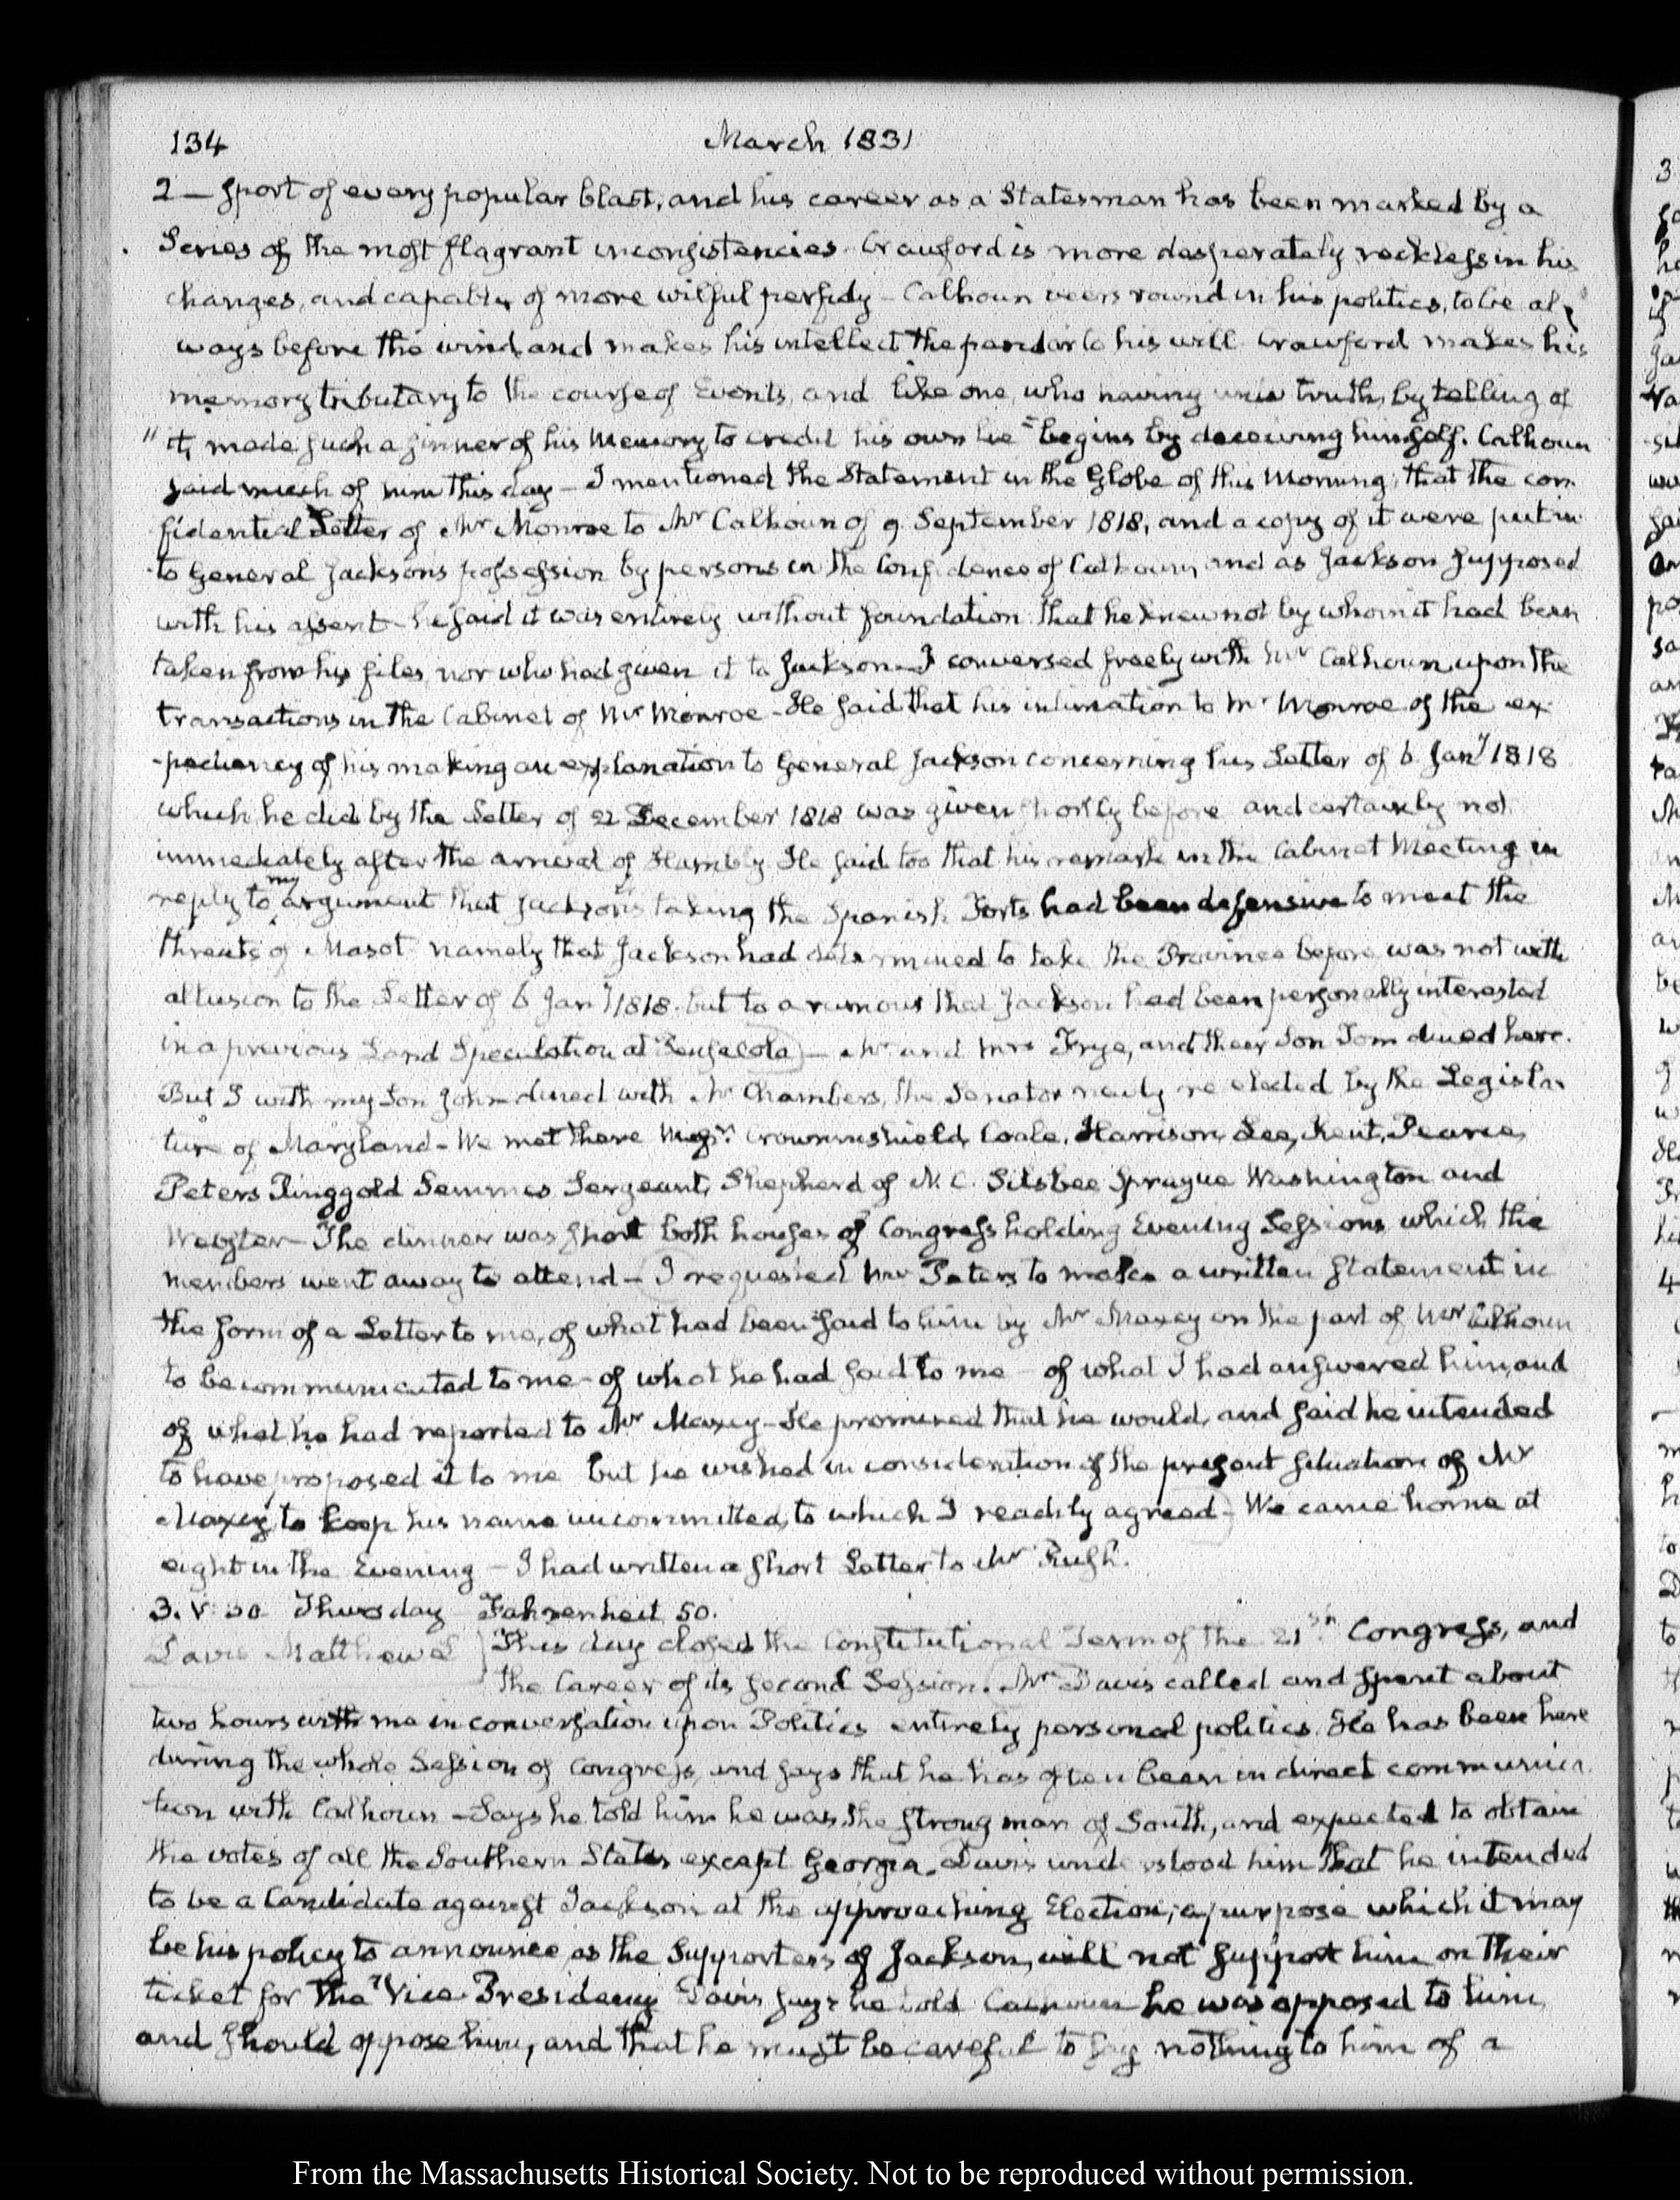 134 March 1831
2 — sport of every popular blast, and his career as a Statesman has been marked by a
Series of the most flagrant inconsistencies. Crawford is more desperately reckless in his
changes, and capable of more wilful perfidy — Calhoun veers round in his politics, to be al-
ways before the wind, and makes his intellect the pandar to his will. Crawford makes his
memory tributary to the course of Events, and like one, who having unto truth, by telling of
" it, made such a sinner of his Memory, to credit his own lie" begins by deceiving himself. Calhoun
said much of him this day — I mentioned the Statement in the Globe of this Morning, that the con-
fidential Letter of Mr Monroe to Mr Calhoun of 9. September 1818, and a copy of it were put in
to General Jackson's possession by persons in the Confidence of Calhoun, and as Jackson supposed
with his assent — he said it was entirely without foundation that he knew not by whom it had been
taken from his files, nor who had given it to Jackson — I conversed freely with Mr Calhoun, upon the
transactions in the Cabinet of Mr Monroe — He said that his intimation to Mr Monroe of the ex-
-pediency of his making an explanation to General Jackson concerning his Letter of 6 Jany 1818
which he did by the Letter of 22 December 1818 was given shortly before and certainly not
immediately after the arrival of Hambly. He said too that his remark in the Cabinet Meeting in
reply to my argument that Jackson's taking the Spanish Forts had been defensive to meet the
threats of Masot namely that Jackson had determined to take the Province before was not with
allusion to the Letter of 6 Jany 1818. but to a rumour that Jackson had been personally interested
in a previous Land Speculation at Pensacola — Mr and Mrs Frye, and their Son Tom dined here.
But I with my Son John dined with Mr Chambers, the Senator newly re elected by the Legisla-
ture of Maryland — We met there Messrs. Crowninshield, Coale, Harrison, Lee, Kent, Pearce,
Peters Ringgold Semmes Sergeant, Shepherd of N. C. Silsbee Sprague Washington and
Webster — The dinner was short both houses of Congress holding Evening Sessions which the
members went away to attend — I requested Mr Peters to make a written statement in
the form of a Letter to me, of what had been said to him by Mr Maxcy on the part of Mr Calhoun
to be communicated to me — of what he had said to me — of what I had answered him, and
of what he had reported to Mr Maxcy — He promised that he would, and said he intended
to have proposed it to me but he wished in consideration of the present situation of Mr
Maxcy, to keep his name uncommitted, to which I readily agreed — We came home at
eight in the Evening — I had written a short Letter to Mr Rush.
3. V. 30 Thursday Fahrenheit 50.
Davis Matthew L This day closed the Constitutional Term of the 21st Congress, and
the Career of its second Session. Mr Davis called and spent about
two hours with me in conversation upon Politics entirely personal politics. He has been here
during the whole Session of Congress, and says that he has often been in direct communica-
tion with Calhoun — Says he told him he was the strong man of South, and expected to obtain
the votes of all the Southern States except Georgia. Davis understood him that he intended
to be a Candidate against Jackson at the approaching Election; a purpose which it may
be his policy to announce, as the Supporters of Jackson, will not support him on their
ticket for the Vice Presidency Davis says he told Calhoun he was opposed to him,
and should oppose him, and that he must be careful to say nothing to him of a
From the Massachusetts Historical Society. Not to be reproduced without permission.